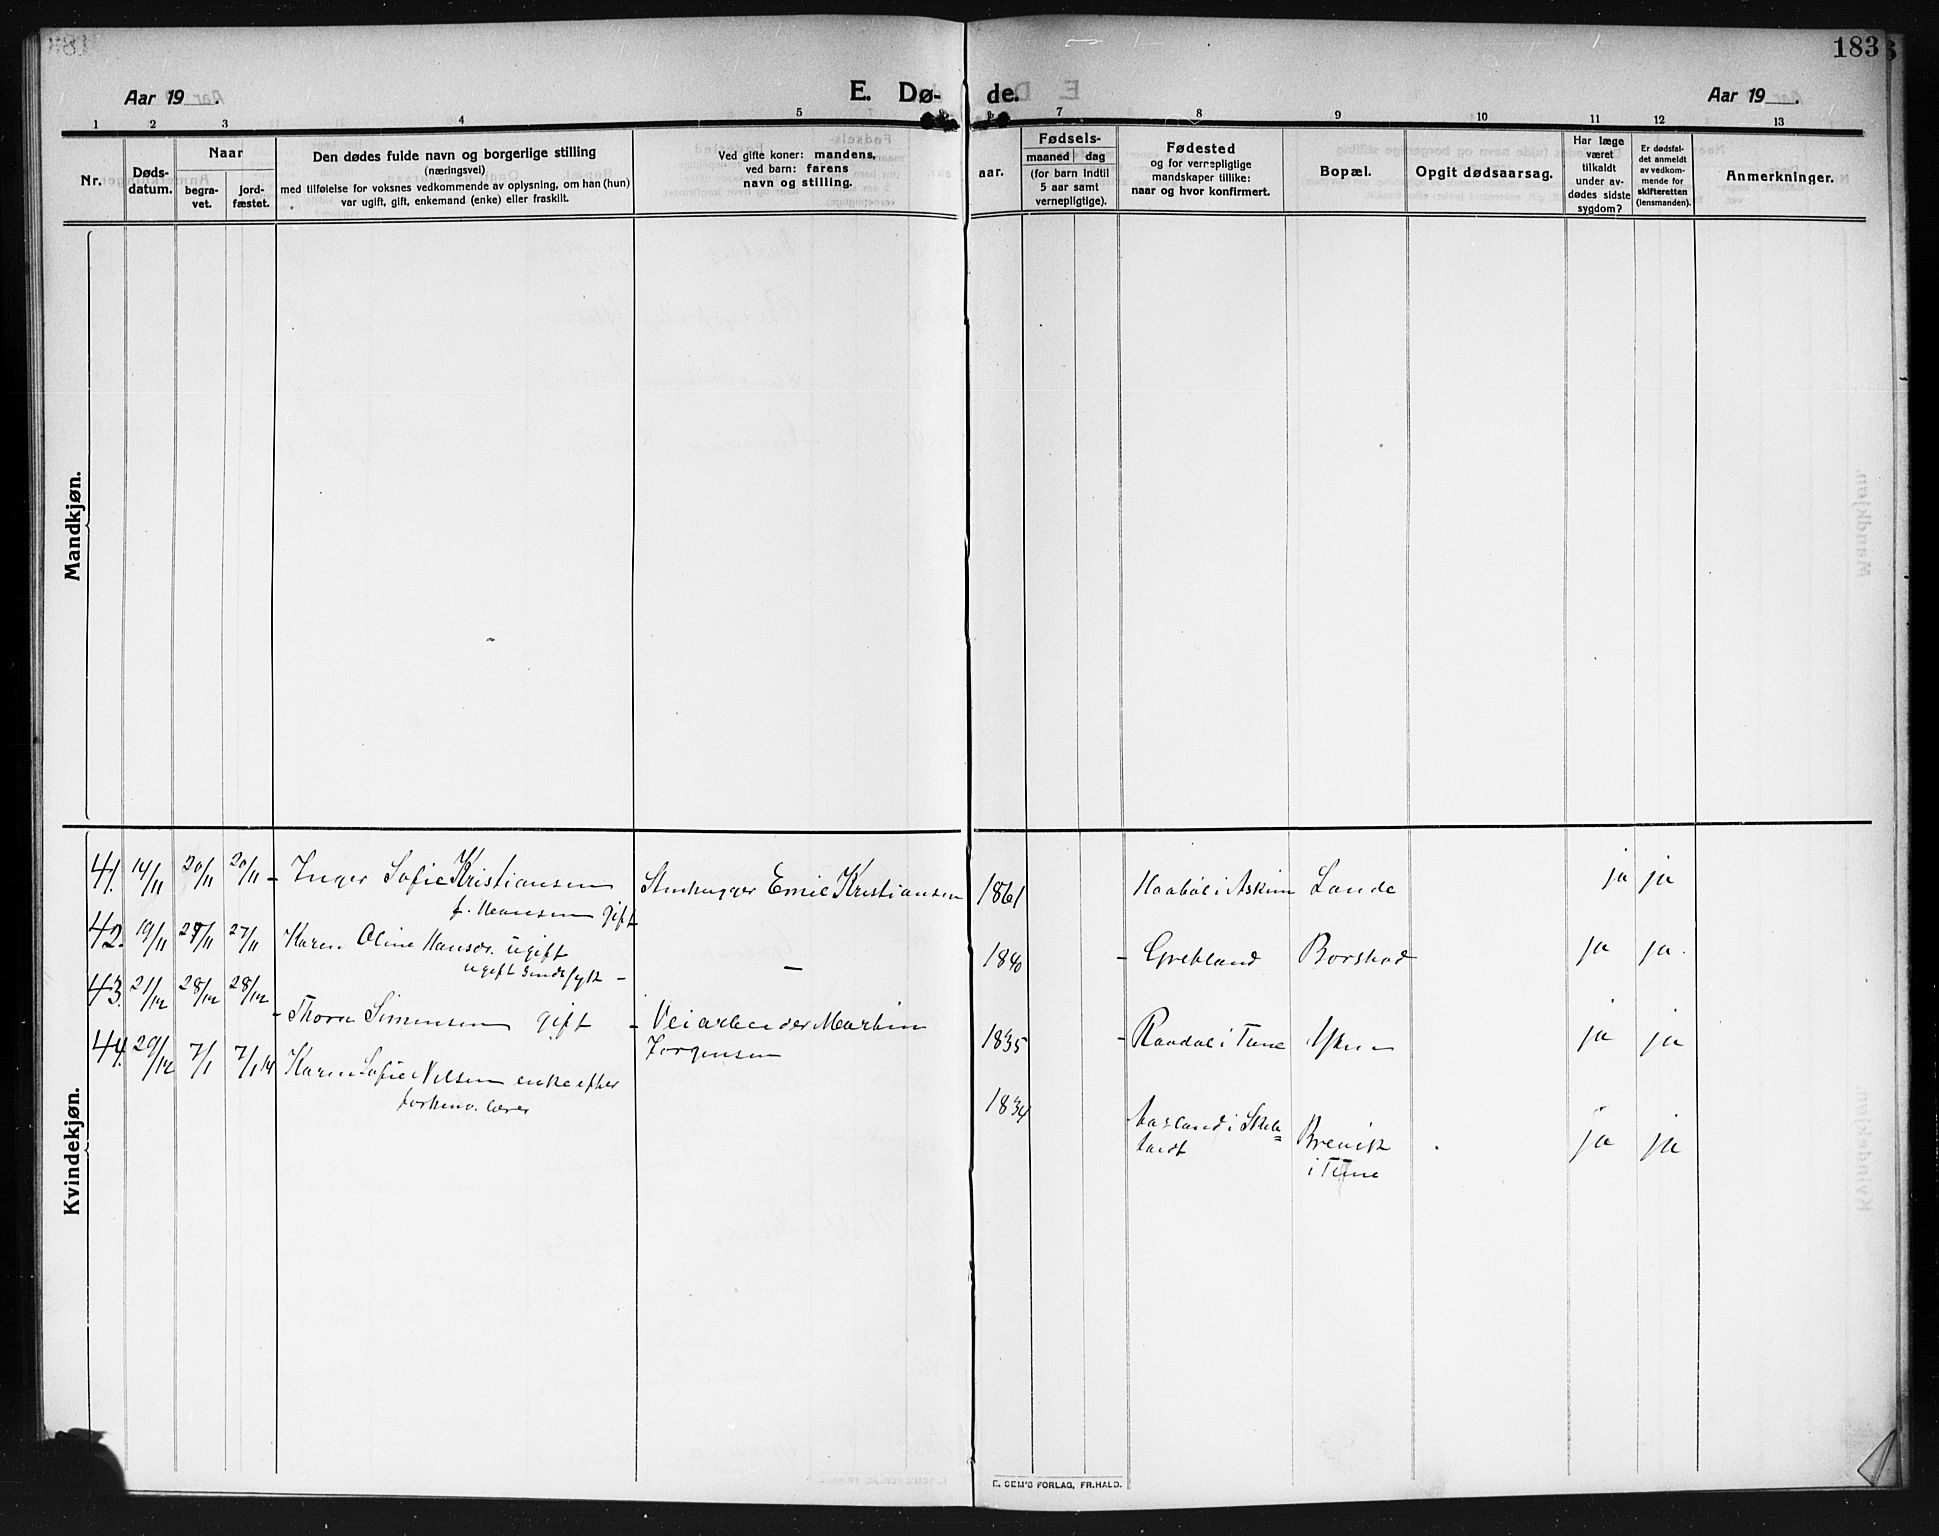 183
E. Dø- de.
Aar 19 .
Aar 19 .
1 2 3 4 5 7 8 9 10 11 12 13
Nr.
Døds-
datum.
Naar
begra-
vet.
jord-
fæstet.
Den dødes fulde navn og borgerlige stilling
(næringsvei)
med tilføielse for voksnes vedkommende av oplysning, om han (hun)
var ugift, gift, enkemand (enke) eller fraskilt.
Ved gifte koner: mandens,
ved barn: farens
navn og stilling.
Fødsels-
aar.
maaned dag
(for barn indtil
5 aar samt
vernepligtige).
Fødested
og for vernepligtige
mandskaper tillike:
naar og hvor konfirmert.
Bopæl.
Opgit dødsaarsag.
Har læge
været
tilkaldt
under av-
dødes sidste
sygdom?
Er dødsfal-
det anmeldt
av vedkom-
mende for
skifteretten
(lensmanden).
Anmerkninger.
Mandkjøn.
Kvindekjøn.
41. 14/11 20/11 20/11 - Inger Sofie Kristiansen Emil Kristiansen 1861 i Askim Lande ja ja
f. Hansen gift
42. 19/11 27/11 27/11 Karen Oline Hansdr. ugift - 1840 - Grekland Borstad ja ja.
ugift
43. 21/12 28/12 28/12 - Thora Simensen gift - Veiarbeider Martin 1835 - i Tune ja ja
Jørgensen
44. 29/12 7/1 7/1 14 Karen Sofie Nilsen enke efter 1834 i Brevik ja ja
lærer
i Tune
E. SEM'S FORLAG, FR.HALD.